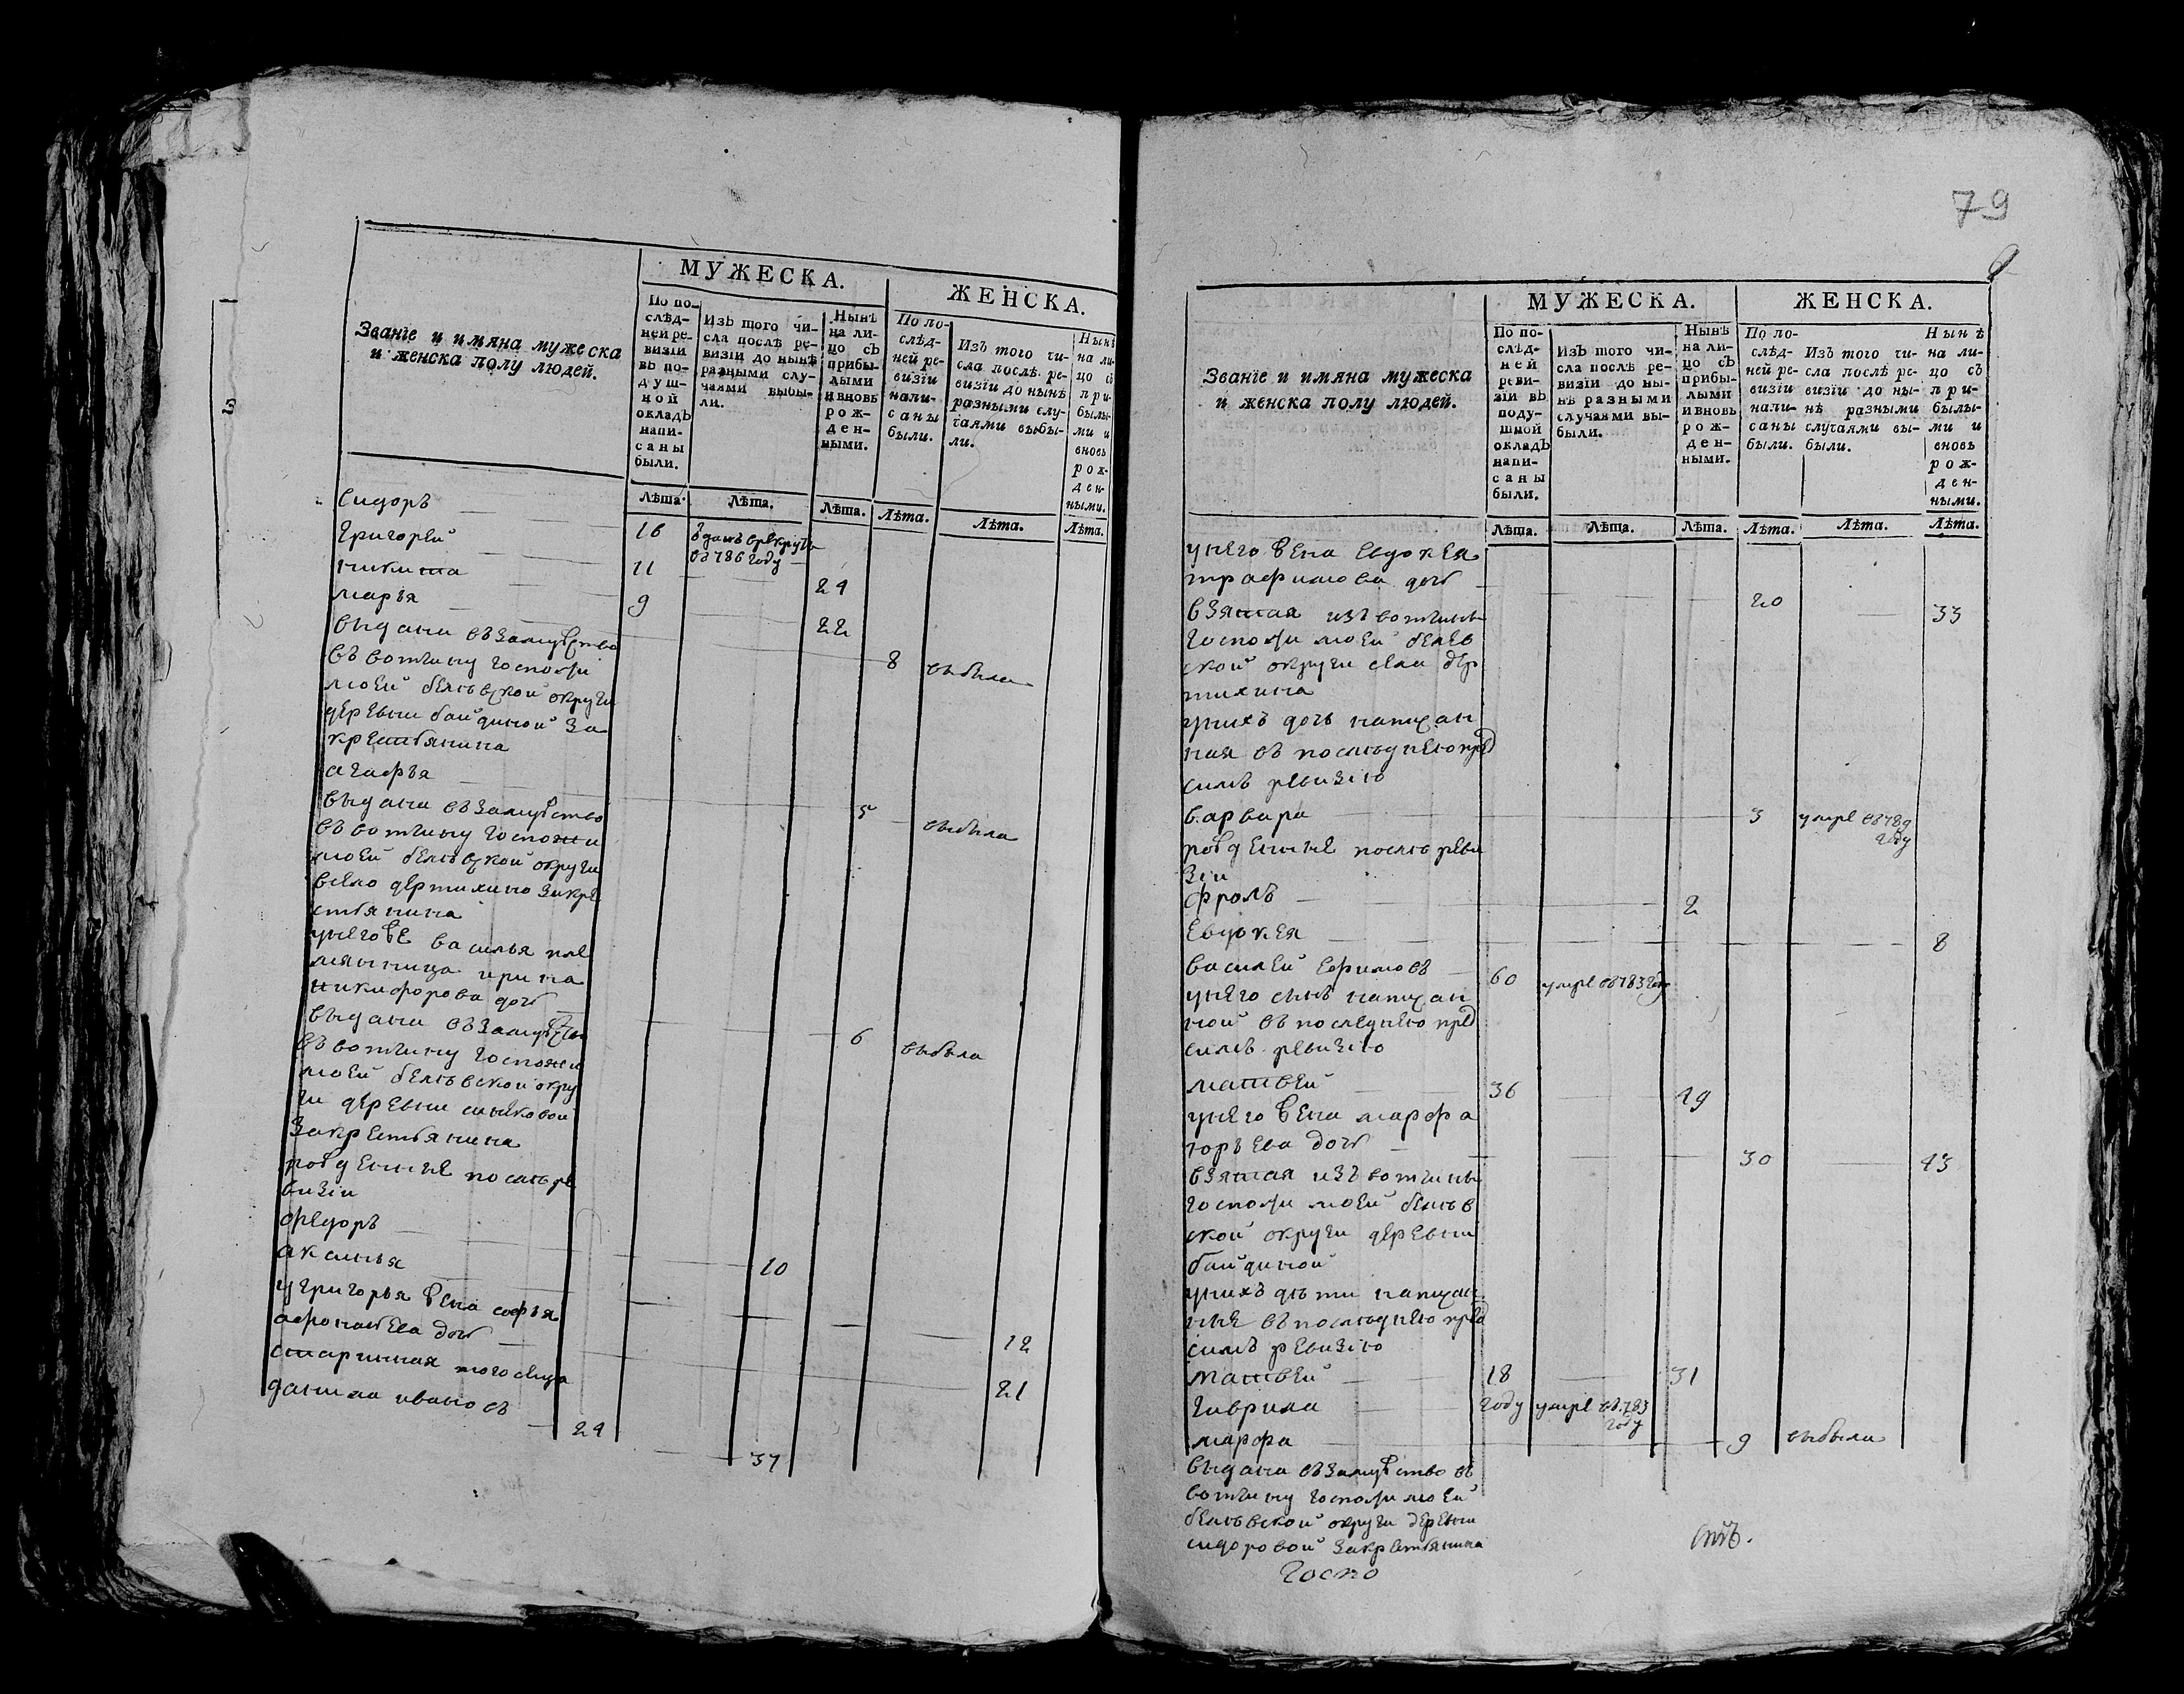 МУЖЕСКА.
ЖЕНСКА.
Званіе и имяна мужеска
и женска полу людей.
По по-
слѣд-
ней ре-
визіи
въ по-
душ-
ной
окладъ
напи-
саны
были.
Изъ того чи-
сла послѣ ре-
визіи до нынѣ
разными слу-
чаями выбы-
ли.
Нынѣ
на ли-
цо съ
прибы-
лыми
и вновь
рож-
ден-
ными.
По по-
слѣд-
ней ре-
визіи
напи-
саны
были.
Изъ того чи-
сла послѣ ре-
визіи до нынѣ
разными слу-
чаями выбы-
ли.
Нынѣ
на ли-
цо съ
при-
былы-
ми и
вновь
рож-
ден-
ными.
Лѣта. Лѣта. Лѣта. Лѣта. Лѣта. Лѣта.
сидоръ 16 в 786 году
григорей 11 24
никита 9 22
марья 8 выбыла
выдана въ замужство
въ вотчину госпожи
моей белевской округи
деревни байдиной за
крестьянина
агафья 5 выбыла
выдана въ замужство
въ вотчину госпожи
моей белевской округи
в село дертихино за кре
стьянина
у него же василья пле
мянница ирина
никифорова дочь 6 выбыла
выдана въ замужство
въ вотчину госпожи
моей белевской окру
ги деревни синковой
за крестьянина
рожденные после ре
визіи
федоръ 10
аксинья 12
у григорья жена софья
афонасьева дочь 21
старинная того сельца
данила ивановъ 24 37
79
МУЖЕСКА.
ЖЕНСКА.
Званіе и имяна мужеска
и женска полу людей.
По по-
слѣд-
ней
реви-
зіи въ
поду-
шной
окладъ
напи-
саны
были.
Изъ того чи-
сла послѣ ре-
визіи до ны-
нѣ разными
случаями вы-
были.
Нынѣ
на ли-
цо съ
прибы-
лыми
и вновь
рож-
ден-
ными.
По по-
слѣд-
ней ре-
визіи
напи-
саны
были.
Изъ того чи-
сла послѣ ре-
визіи до ны-
нѣ разными
случаями вы-
были.
Нынѣ
на ли-
цо съ
при-
былы-
ми и
вновь
рож-
ден-
ными.
Лѣта. Лѣта. Лѣта. Лѣта. Лѣта. Лѣта.
у него жена евдокея
трафимова дочь 20 33
взятая изъ вотчины
госпожи моей белев
ской округи села дер
тихина
у нихъ дочь написан
ная въ последнею пред
симъ ревизію
варвара 3 умре въ 789 году
рожденные после реви
зіи
фролъ 2
евдокея 8
василей ефимовъ 60 умре въ 783 году
у него сынъ написан
ной въ последнею пред
симъ ревизію
матвей 36 49
у него жена марфа
горъева дочь 30 43
взятая изъ вотчины
госпожи моей белев
ской округи деревни
байдиной
у нихъ дети написан
ные въ последнею пред
симъ ревизію
матвей 18 31
гаврила году умре въ 783 году
марфа 9 выбыла
выдана въ замужство въ
вотчину госпожи моей
белевской округи деревни
сидоровой за крестьянина
Госпо